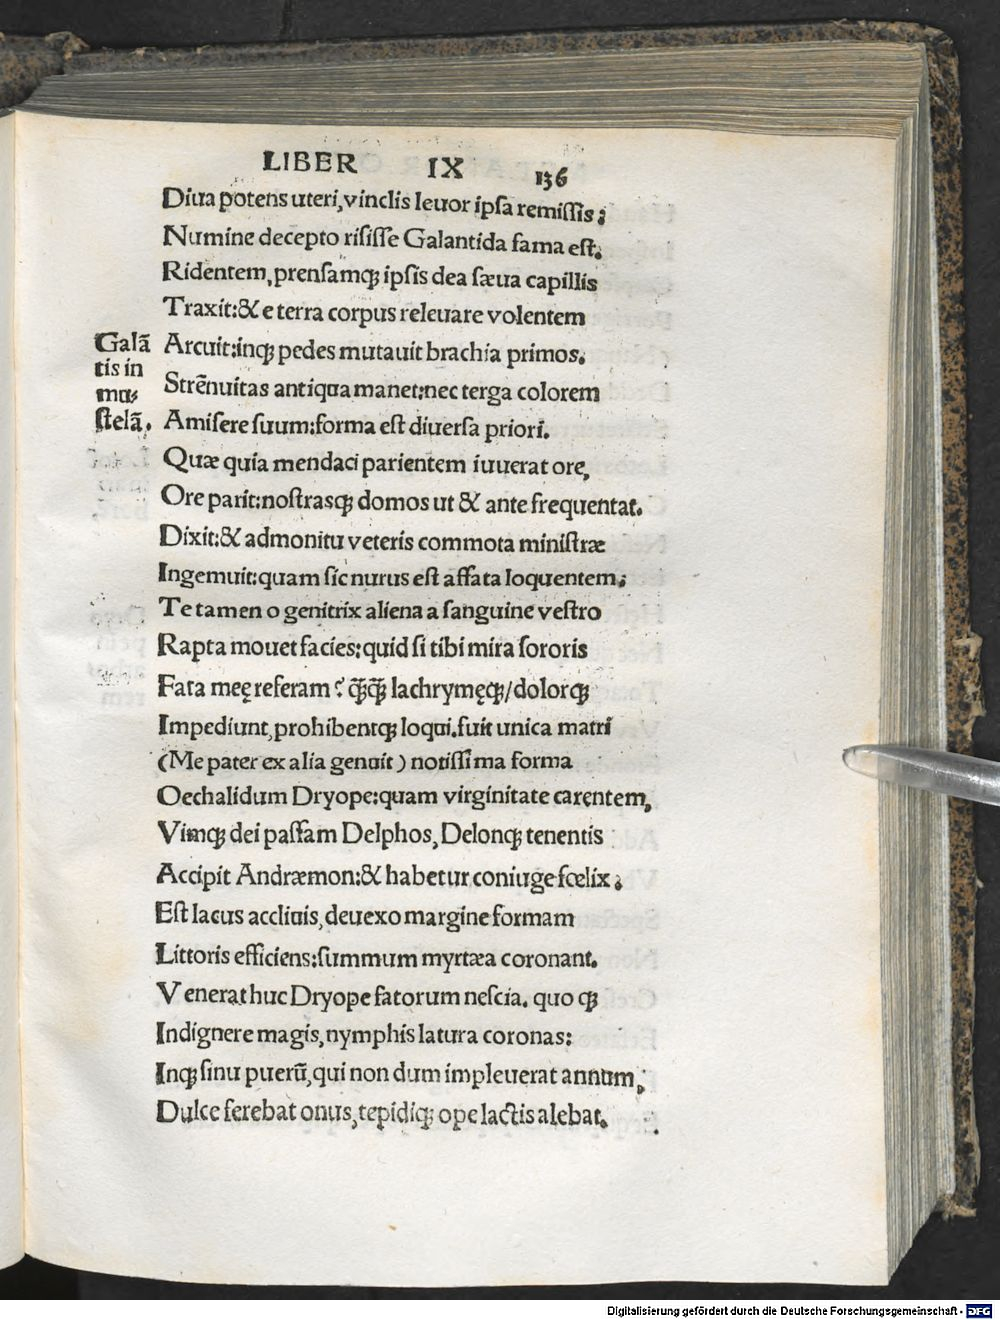 LIBER IX 136
Diua potens uteri, vinclis leuor ipsa remissis;
Numine decepto risisse Galantida fama est.
Ridentem, prensamq; ipsis dea sæua capillis
Traxit: & e terra corpus releuare volentem
Galã
tis in
mu⸗
stelã.
Arcuit: inq; pedes mutauit brachia primos.
Strẽnuitas antiqua manet: nec terga colorem
Amisere suum: forma est diuersa priori.
Quæ quia mendaci parientem iuuerat ore,
Ore parit: nostrasq; domos ut & ante frequentat.
Dixit: & admonitu veteris commota ministræ
Ingemuit: quam sic nurus est affata loquentem;
Te tamen o genitrix aliena a sanguine vestro
Rapta mouet facies: quid si tibi mira sororis
Fata meę referam? q̃q̃ lachrymęq;/dolorq;
Impediunt, prohibentq; loqui. fuit unica matri
(Me pater ex alia genuit) notissima forma
Oechalidum Dryope: quam virginitate carentem,
Vimq; dei passam Delphos, Delonq; tenentis
Accipit Andræmon: & habetur coniuge fœlix;
Est lacus accliuis, deuexo margine formam
Littoris efficiens: summum myrtæa coronant.
Venerat huc Dryope fatorum nescia. quo q;
Indignere magis, nymphis latura coronas:
Inq; sinu puerũ, qui non dum impleuerat annum,
Dulce ferebat onus, tepidiq; ope lactis alebat.
Digitalisierung gefördert durch die Deutsche Forschungsgemeinschaft - DFG